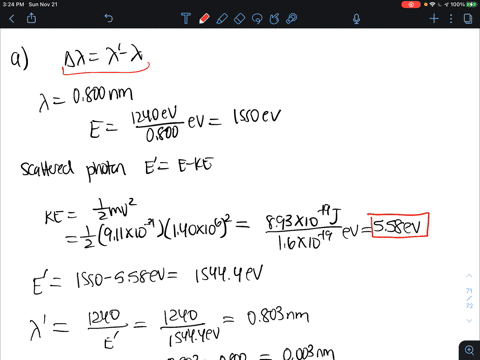 3:24 PM Sun Nov 21
100%
a) Δλ = λ' - λ
λ = 0.800 nm
E = 1240 eV / 0.800 eV = 1550 eV
scattered photon E' = E-KE
KE = 1/2 mv²
= 1/2 (9.11×10⁻³¹)(1.40×10⁶)² = 8.93×10⁻¹⁹ J / 1.6×10⁻¹⁹ eV = 5.58 eV
E' = 1550 - 5.58 eV = 1544.4 eV
λ' = 1240 / E' = 1240 / 1544.4 eV = 0.803 nm
0.003 nm
71
/
72